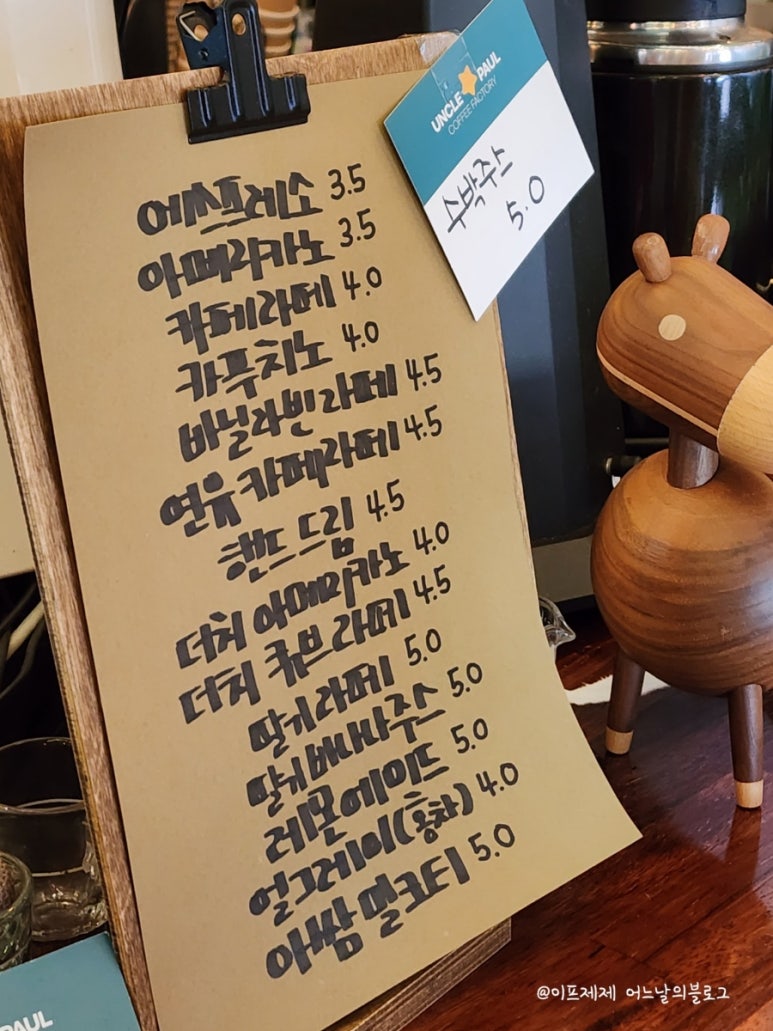 UNCLE PAUL
COFFEE FACTORY
수박주스
5.0
에스프레소 3.5
아메리카노 3.5
카페라떼 4.0
카푸치노 4.0
바닐라빈라떼 4.5
연유카페라떼 4.5
핸드드립 4.5
더치 아메리카노 4.0
더치 큐브라떼 4.5
딸기라떼 5.0
딸기바나나주스 5.0
레몬에이드 5.0
얼그레이(홍차) 4.0
아쌈밀크티 5.0
PAUL
@이프제제 어느날의블로그